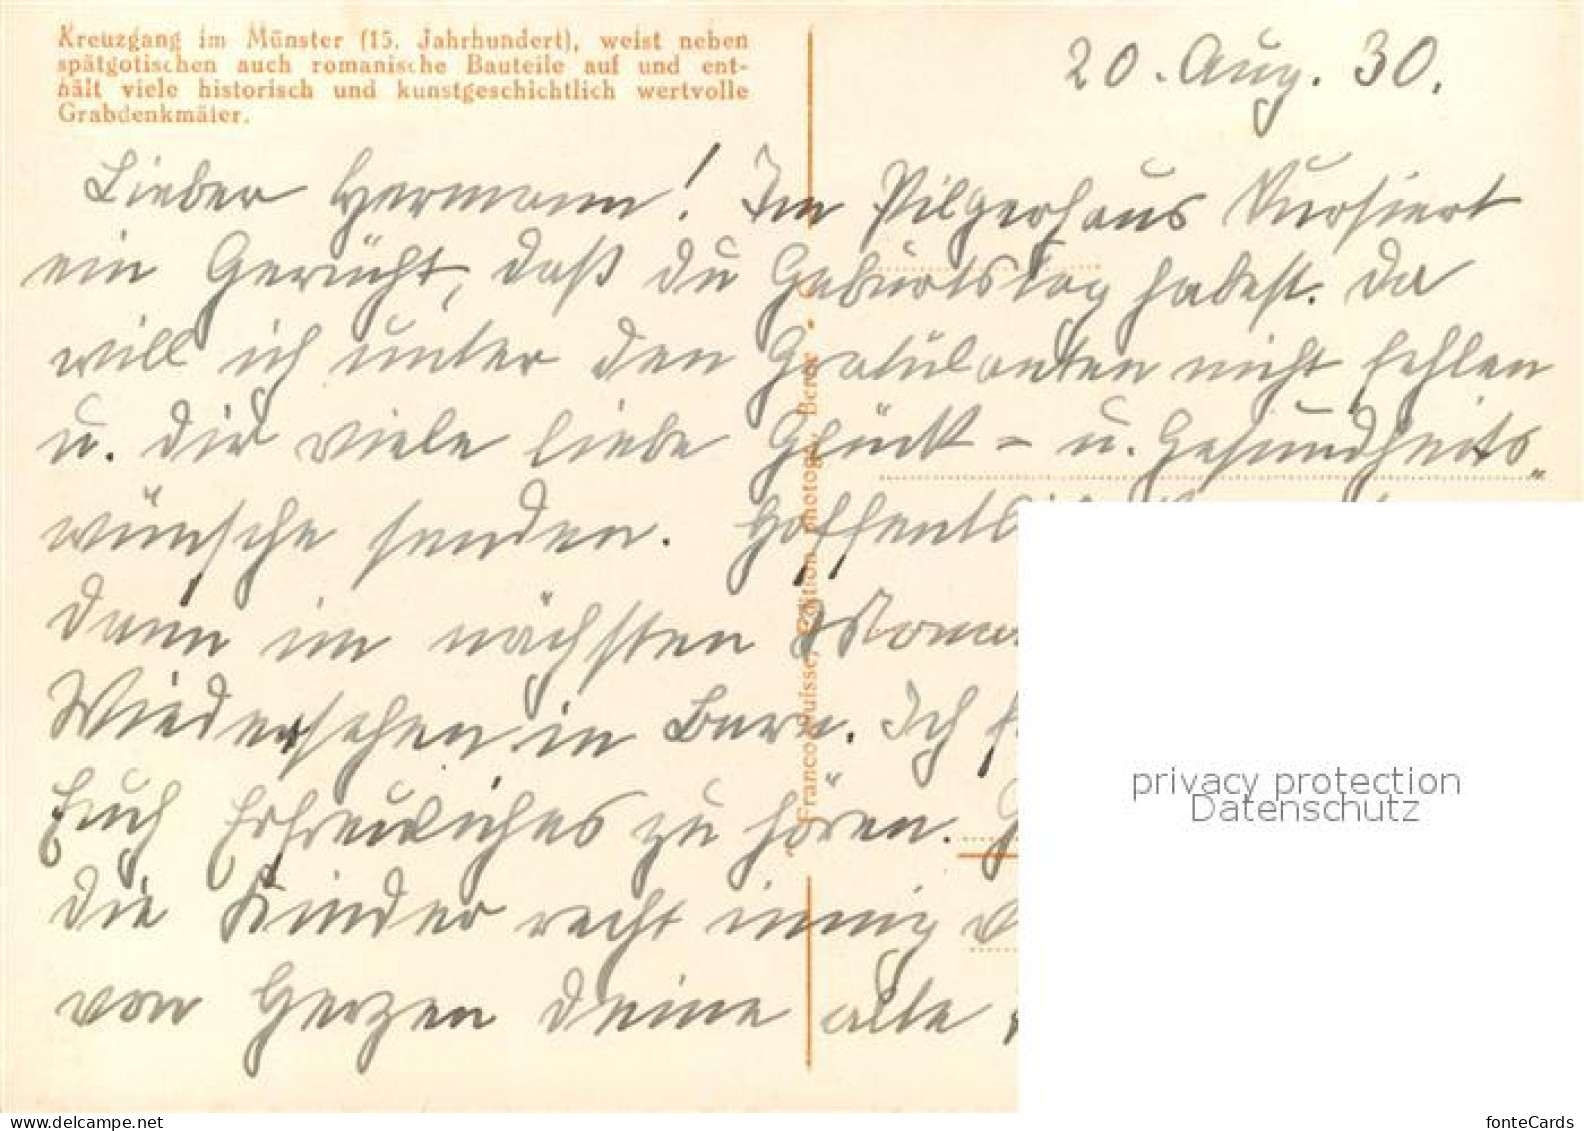 Kreuzgang im Münster (15. Jahrhundert), weist neben
spätgotischen auch romanische Bauteile auf und ent-
hält viele historisch und kunstgeschichtlich wertvolle
Grabdenkmäler.
20. Aug. 30.
Lieber Hermann! Im Pilgerhaus kursiert
ein Gerücht, daß du Geburtstag habest. Da
will ich unter den Gratulanten nicht fehlen
u. dir viele liebe Glück- u. Gesundheits„
wünsche senden. Hoffentl
dann im nächsten
Wiedersehen in Bern. Ich
Euch Erfreuliches zu hören.
die Kinder recht innig
von Herzen deine alte
Franco-Suisse, Edition photogr. Berne
privacy protection
Datenschutz
fonteCards